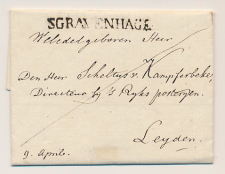 SGRAVENHAGE
Weledelgeboren Heer
Den Heer Scholtus v. Kampferbeke
Directeur bij 's Ryks posteryen.
Leyden.
9. Aprile.